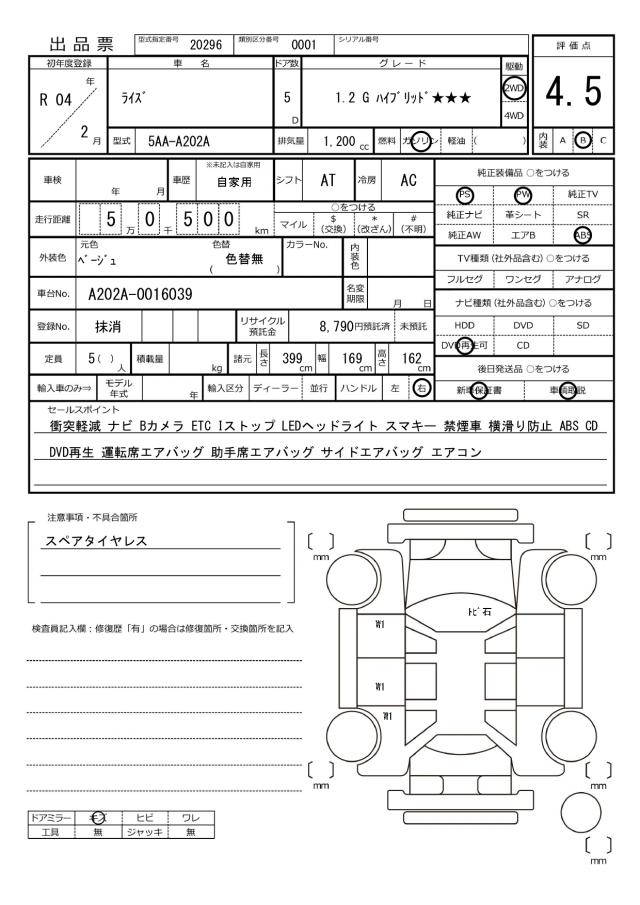 出品票 型式指定番号 20296 類別区分番号 0001 シリアル番号
評価点
4.5
内装 A B C
初年度登録 車 名 ドア数 グレード 駆動
R 04 年 2 月
ﾗｲｽﾞ
5 D
1.2 G ﾊｲﾌﾞﾘｯﾄﾞ★★★
2WD
4WD
型式 5AA-A202A 排気量 1,200 cc 燃料 ガソリン 軽油 ( )
車検 年 月 車歴 ※未記入は自家用 自家用 シフト AT 冷房 AC
走行距離 5 万 0 千 5 0 0 km
○をつける
マイル $(交換) *(改ざん) #(不明)
外装色 元色 ﾍﾞｰｼﾞｭ 色替 ( 色替無 ) カラーNo. 内装色
車台No. A202A-0016039 名変期限 月 日
登録No. 抹消 リサイクル預託金 8,790円預託済 未預託
定員 5( )人 積載量 kg 諸元 長さ 399 cm 幅 169 cm 高さ 162 cm
輸入車のみ⇒ モデル年式 年 輸入区分 ディーラー 並行 ハンドル 左 右
純正装備品 ○をつける
PS PW 純正TV
純正ナビ 革シート SR
純正AW エアB ABS
TV種類(社外品含む) ○をつける
フルセグ ワンセグ アナログ
ナビ種類(社外品含む) ○をつける
HDD DVD SD
DVD再生可 CD
後日発送品 ○をつける
新車保証書 車輌取説
セールスポイント
衝突軽減 ナビ Bカメラ ETC Iストップ LEDヘッドライト スマキー 禁煙車 横滑り防止 ABS CD
DVD再生 運転席エアバッグ 助手席エアバッグ サイドエアバッグ エアコン
注意事項・不具合箇所
スペアタイヤレス
検査員記入欄：修復歴「有」の場合は修復箇所・交換箇所を記入
〔 〕mm
〔 〕mm
ﾄﾋﾞ石
W1
W1
W1
〔 〕mm
〔 〕mm
〔 〕mm
ドアミラー キズ ヒビ ワレ
工具 無 ジャッキ 無